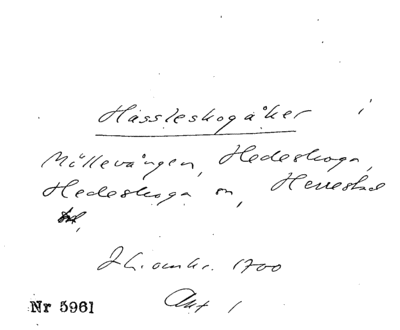 Hässleskogåker i
Möllevången, Hedeskoga,
Hedeskoga sn, Herrestad
hd,
Jb. omkr. 1700
Akt 1
Nr 5961